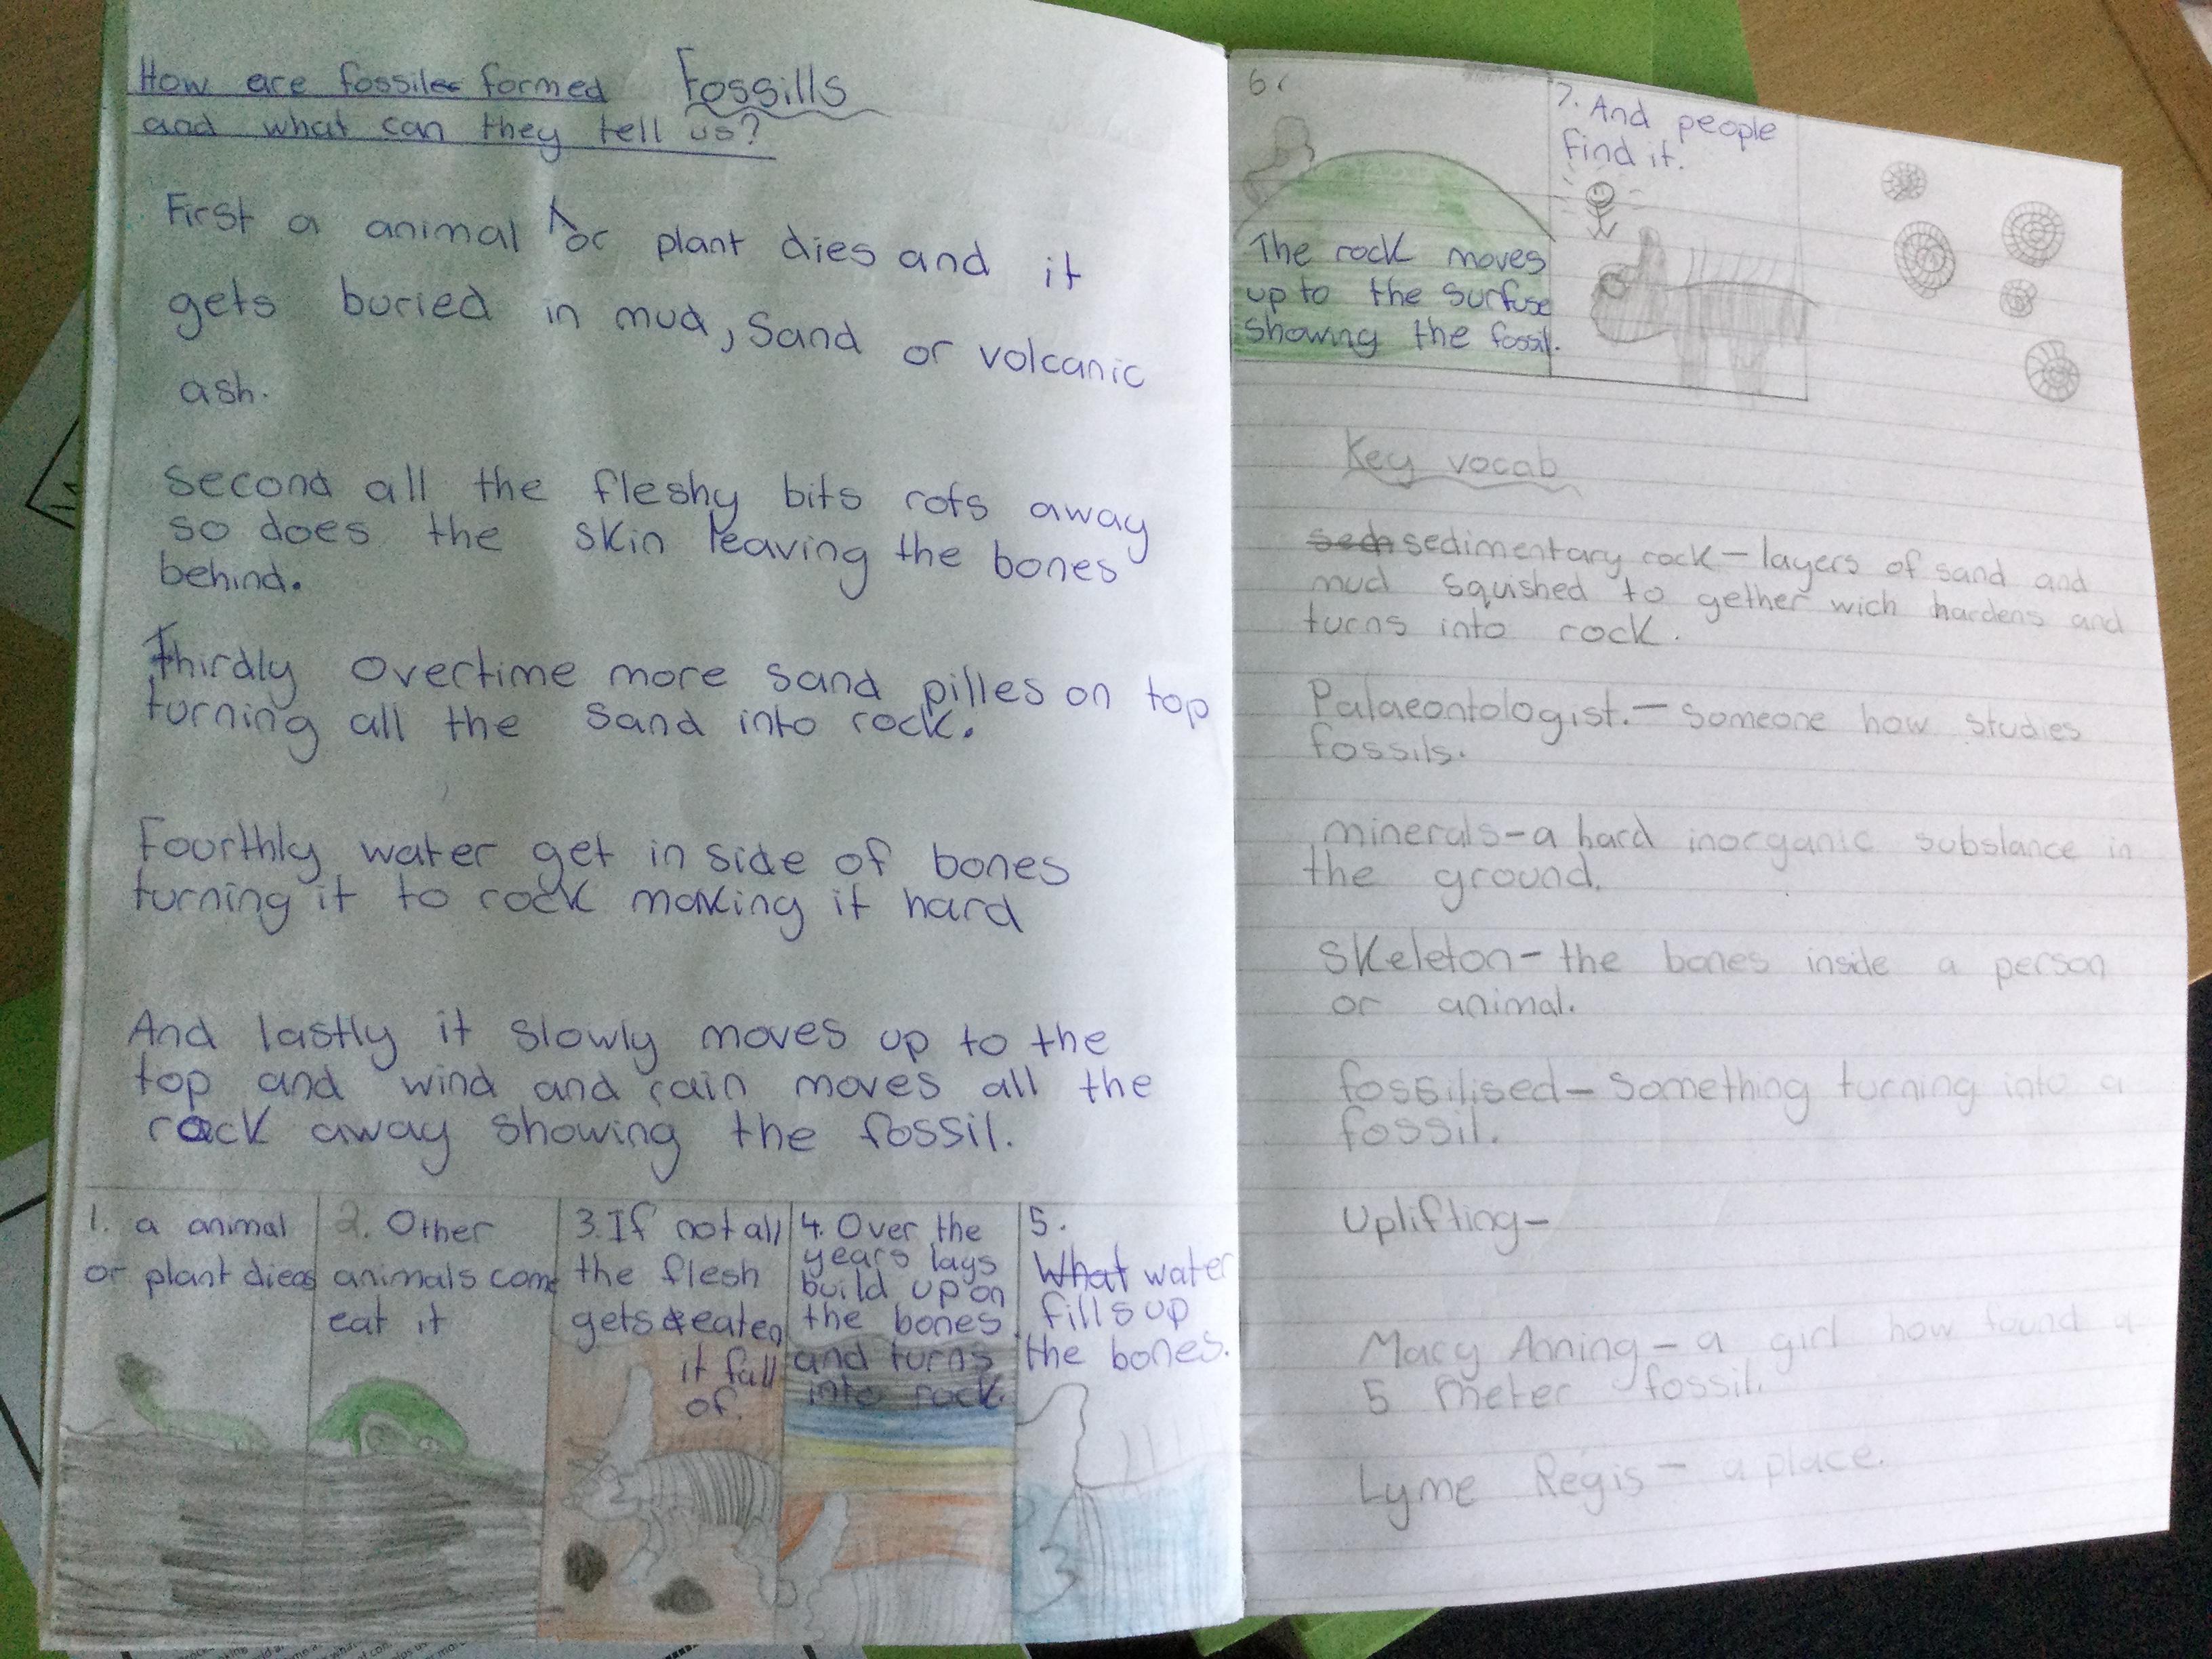 How are fossils formed
and what can they tell us?
Fossills
First a animal or plant dies and it
gets buried in mud, Sand or volcanic
ash.
Second all the fleshy bits rots away
so does the skin leaving the bones
behind.
Thirdly overtime more sand pilles on top
turning all the sand into rock.
Fourthly water get in side of bones
turning it to rock making it hard
And lastly it slowly moves up to the
top and wind and rain moves all the
rock away showing the fossil.
1. a animal
or plant dies
2. Other
animals come
eat it
3. If not all
the flesh
gets eaten
it fall
of.
4. Over the
years lays
build up on
the bones
and turns
into rock.
5.
What water
fills up
the bones.
6.
The rock moves
up to the surfuse
showing the fossil.
7. And people
find it.
Key vocab
sedimentary rock - layers of sand and
mud squished to gether wich hardens and
turns into rock.
Palaeontologist. - someone how studies
fossils.
minerals - a hard inorganic substance in
the ground.
Skeleton - the bones inside a person
or animal.
fossilised - something turning into a
fossil.
Uplifting -
Macy Anning - a girl how found a
5 meter fossil.
Lyme Regis - a place.